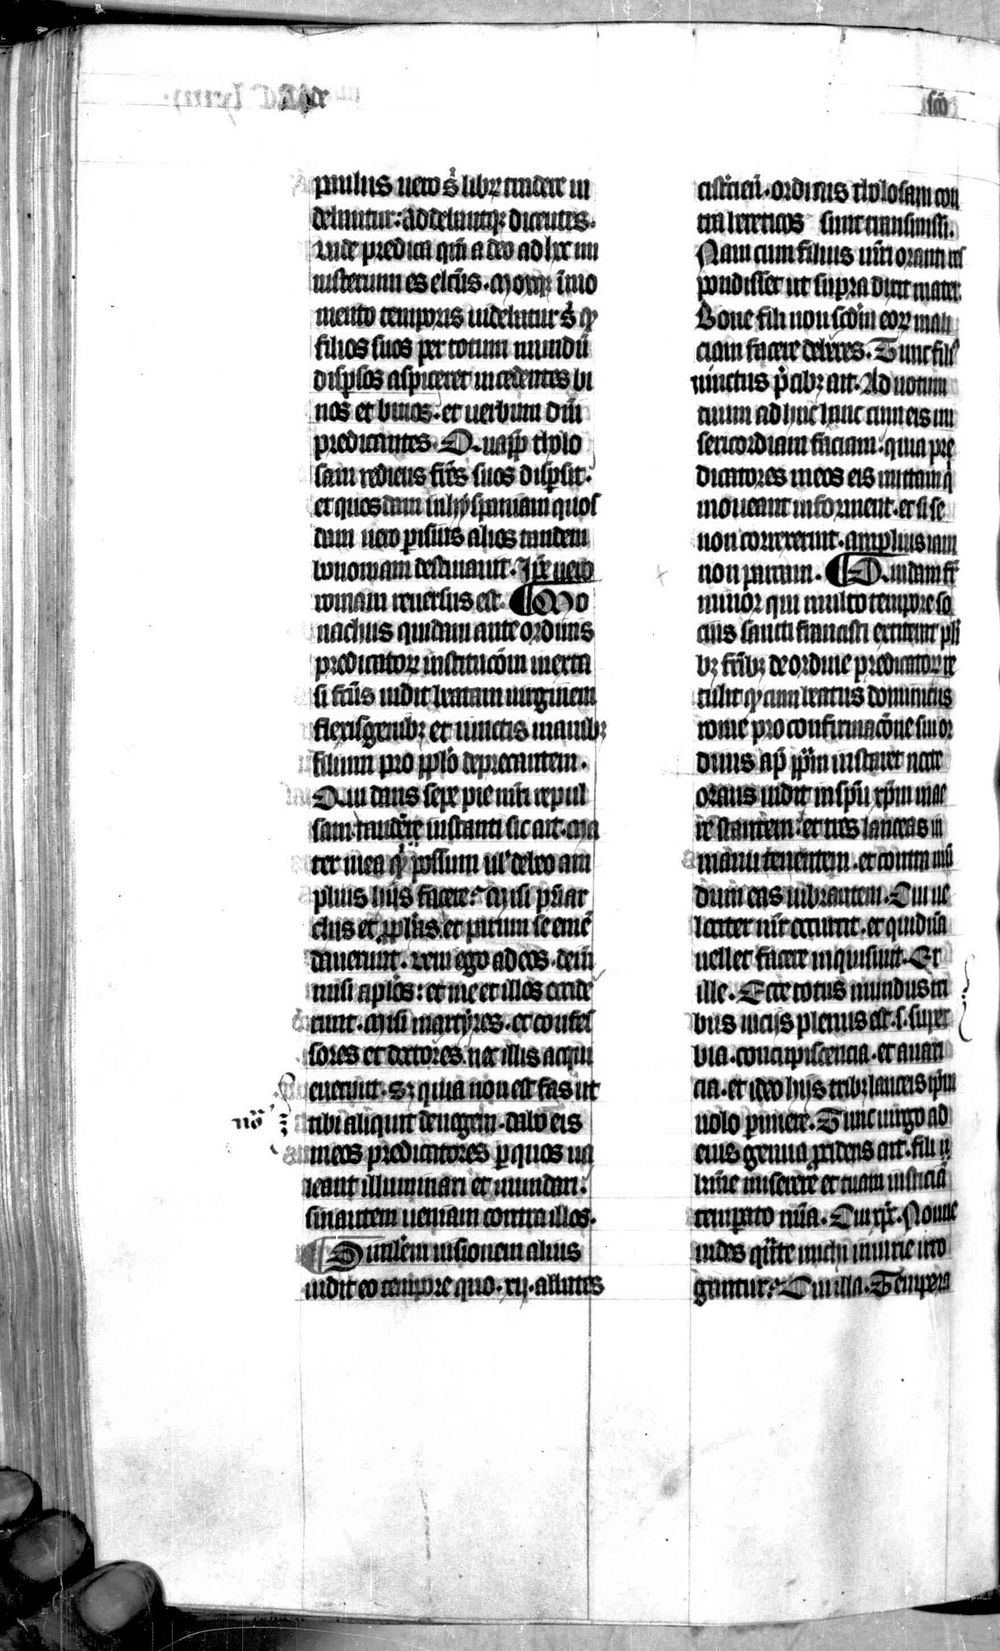 scō
paulus uero s̄ librꝫ tradere ui
debantur: addebantqꝫ dicentes.
Uade predica qm̄ a deo ad hoc mi
nisterium es elcūs. Moxqꝫ ī mo
mento temporis uidebatur s̄ qꝫ
filios suos per totum mundū
disp̄sos aspiceret incedentes bi
nos et binos. et uerbum dīn
predicantes. Quapp̄ tholo
sam rediens fr̄es suos disp̄sit:
et quosdam in hyspaniam quos
dam uero pisius alios tandem
bononiam destinauit. Ip̄e uero
romam reuersus est. ¶ Mo
nachus quidam ante ordinis
predicatorꝝ institucōm in exta
si fc̄us uidit beatam uirginem
flexis genibꝫ et iunctis manibꝫ
filium pro pplō deprecantem.
Qui dans sepe pie mr̄i repul
sam tandem instanti sic ait. Ma
ter mea qͥd possum uel debeo am
plius hijs facere? Misi p̄riar
chas et pphās. et parum se emē
dauerunt. Ueni ego ad eos. dein
misi aplōs: et me et illos occide
runt. Misi martyres. et confes
sores et doctores. nec illis acqui
euerunt. Sꝫ quia non est fas ut
nō
tibi aliquit denegem. dabo eis
meos predicatores per quos ua
leant illuminari et mundari:
sin autem ueniam contra illos.
¶ Similem uisionem alius
uidit eo tempore quo .xij. abbates
cisterciēn. ordinis tholosam con
tra hereticos sunt transmissi.
Nam cum filius mr̄i oranti res
pondisset ut supra dixit mater.
Bone fili non scdm̄ eorꝫ mali
ciam facere debes. Tunc fili⁹
uinctus p̄cibꝫ ait. Ad uotum
tuum adhuc hanc cum eis mi
sericordiam faciam: quia pre
dicatores meos eis mittam qͥ
moneant informent. et si se
non correxerint. amplius iam
non parcam. ¶ Quidam fr̄
minor qui multo tempore so
cius sancti francisci extiterat plͥ
bꝫ fr̄ibꝫ de ordine predicatorꝝ re
tulit qꝫ cum beatus dominicus
rome pro confirmacōne sui or
dinis ap̄ ppām instaret nocte
orans uidit in spū xp̄m in ae
re stantem: et tres lanceas in
manu tenentem. et contra mū
dum eas uibrantem. Cui ue
lociter mr̄ occurrit. et quidnā
uellet facere inquisiuit. Et
ille. Ecce totus mundus tri
bus uicijs plenus est. s. super
bia. concupiscencia. et auari
cia. et ideo hijs tribꝫ lanceis ip̄m
uolo perimere. Tunc uirgo ad
eius genua p̄cidens ait. fili
miserere et tuam iusticiā
temperato mīa. Cui xp̄c. Nonne
uides qn̄te michi iniurie irro
gantur? Cui illa. Tempera